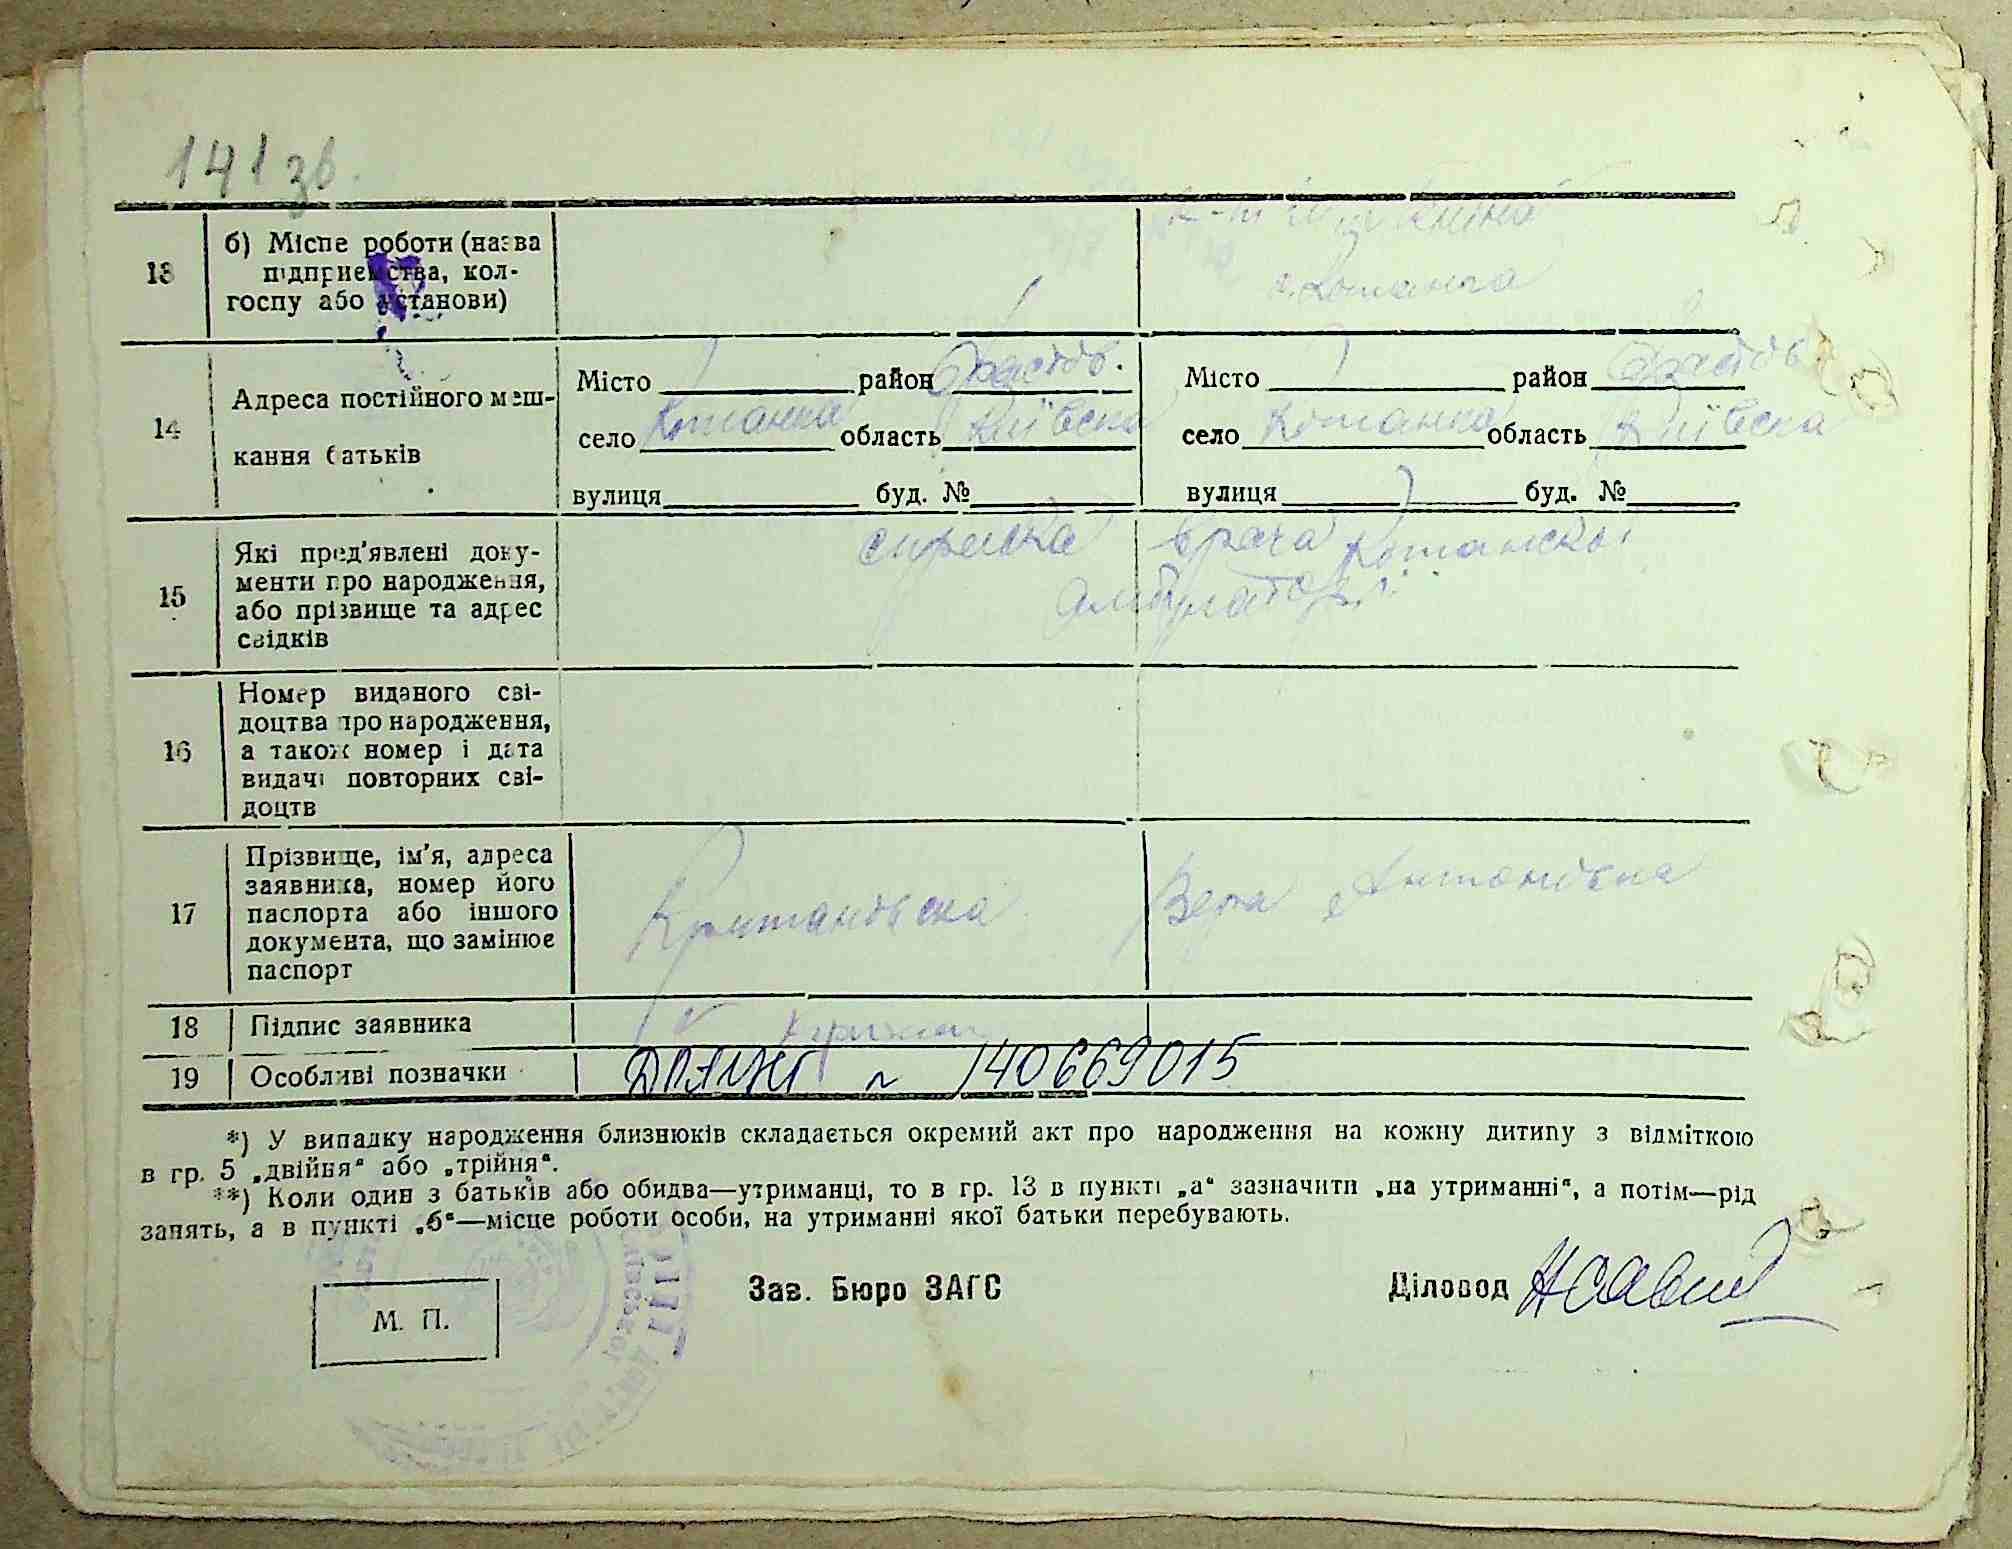 141 зв.
13
б) Місце роботи (назва
підприємства, кол-
госпу або установи)
с. Кошанка
14
Адреса постійного меш-
кання батьків
Місто район Фастов. Місто район Фастов
село Кошанка область Київска село Кошанка область Київска
вулиця буд. № вулиця буд. №
15
Які пред'явлені доку-
менти про народження,
або прізвище та адрес
свідків
справка врача Кошанскої
амбулаторії
16
Номер виданого сві-
доцтва про народження,
а також номер і дата
видачі повторних сві-
доцтв
17
Прізвище, ім'я, адреса
заявника, номер його
паспорта або іншого
документа, що замінює
паспорт
Вера Антоновна
18 Підпис заявника
19 Особливі позначки
140669015
*) У випадку народження близнюків складається окремий акт про народження на кожну дитину з відміткою
в гр. 5 „двійня“ або „трійня“.
**) Коли один з батьків або обидва—утриманці, то в гр. 13 в пункті „а“ зазначити „на утриманні“, а потім—рід
занять, а в пункті „б“—місце роботи особи, на утриманні якої батьки перебувають.
М. П.
Зав. Бюро ЗАГС
Діловод